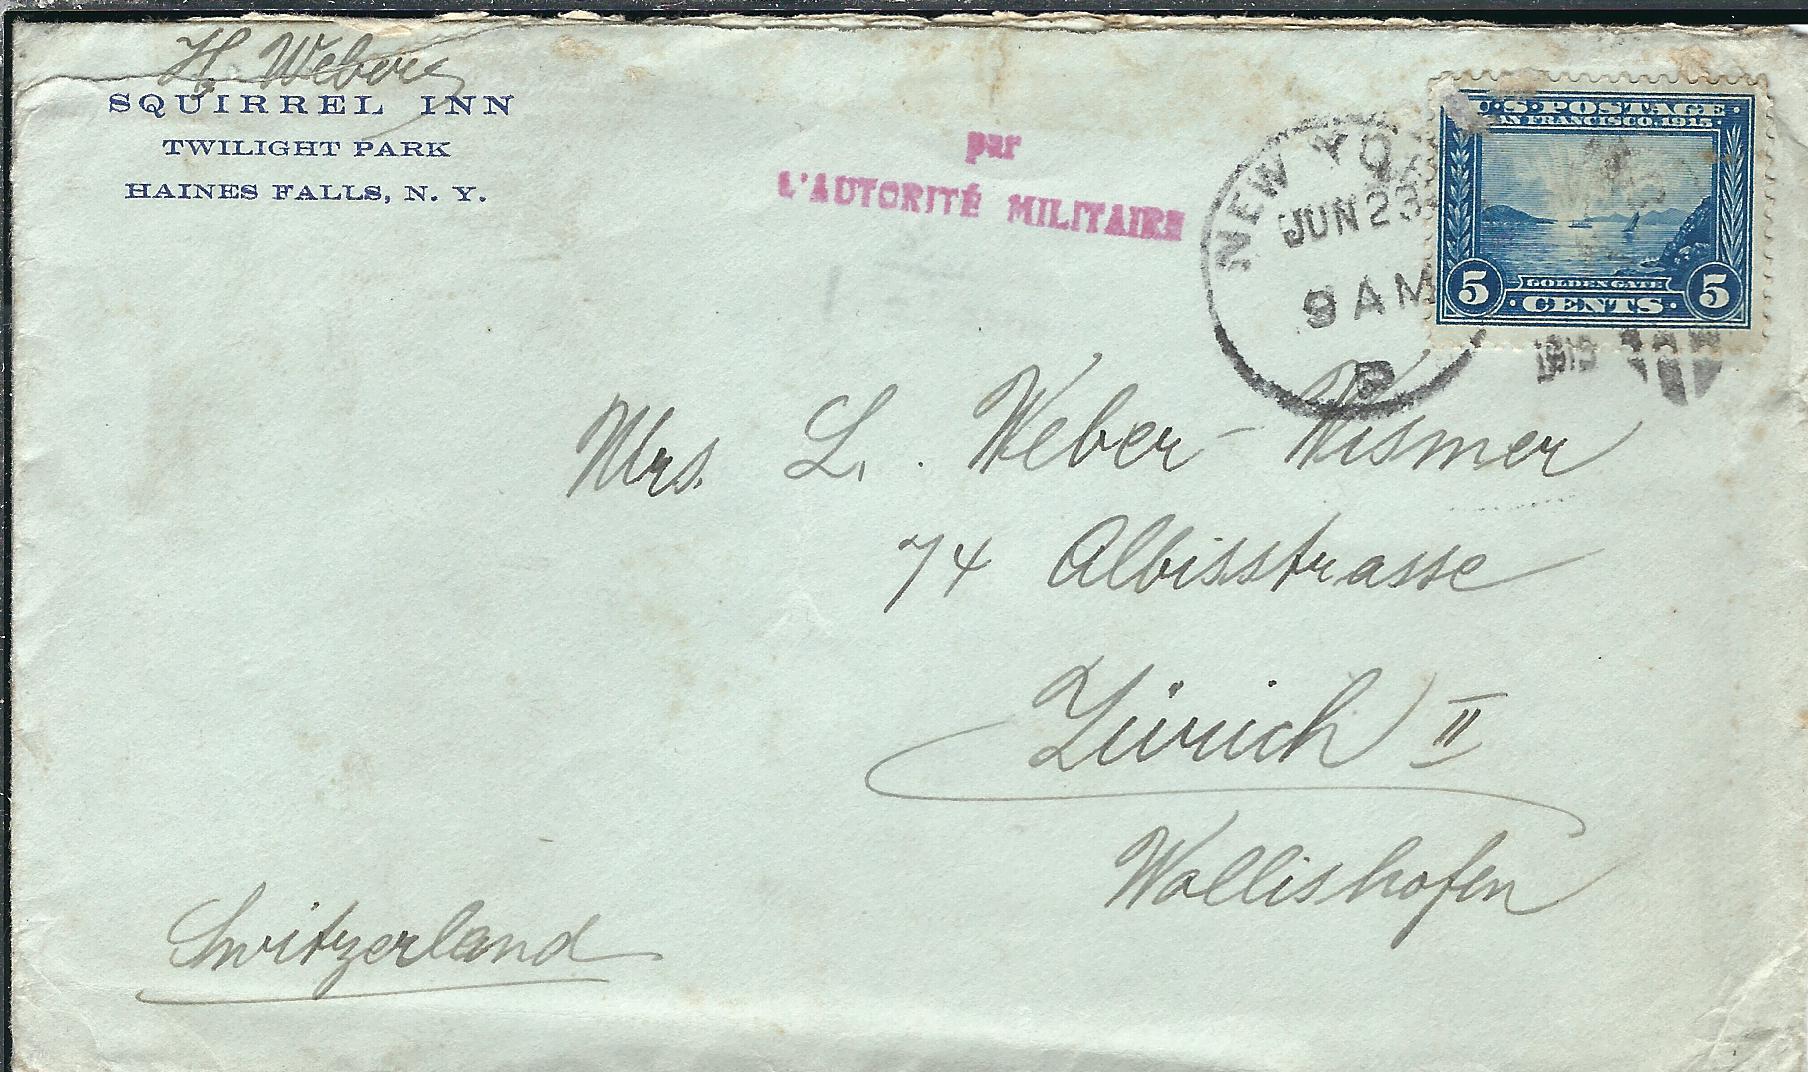 H. Weber
SQUIRREL INN
TWILIGHT PARK
HAINES FALLS, N. Y.
par
L'AUTORITÉ MILITAIRE
NEW YO
JUN 23
9 AM
P
U.S. POSTAGE
SAN FRANCISCO, 1915
GOLDEN GATE
5 CENTS 5
Mrs. L. Weber-Wismer
74 Albisstrasse
Zürich II
Wollishofen
Switzerland